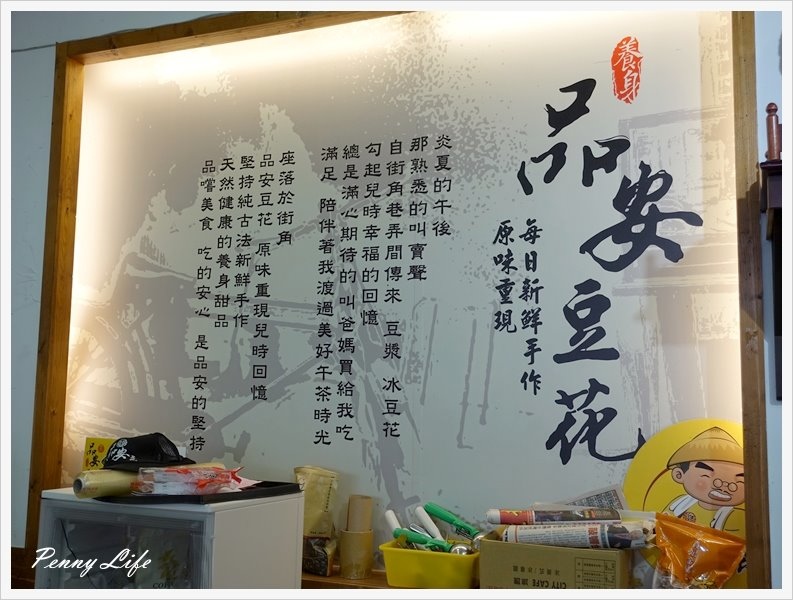 養身
品安豆花
每日新鮮手作
原味重現
炎夏的午後
那熟悉的叫賣聲
自街角巷弄間傳來 豆漿 冰豆花
勾起兒時幸福的回憶
總是滿心期待的叫爸媽買給我吃
滿足 陪伴著我渡過美好午茶時光
座落於街角
品安豆花 原味重現兒時回憶
堅持純古法新鮮手作
天然健康的養身甜品
品嚐美食 吃的安心 是品安的堅持
品安
CITY CAFE
Penny Life